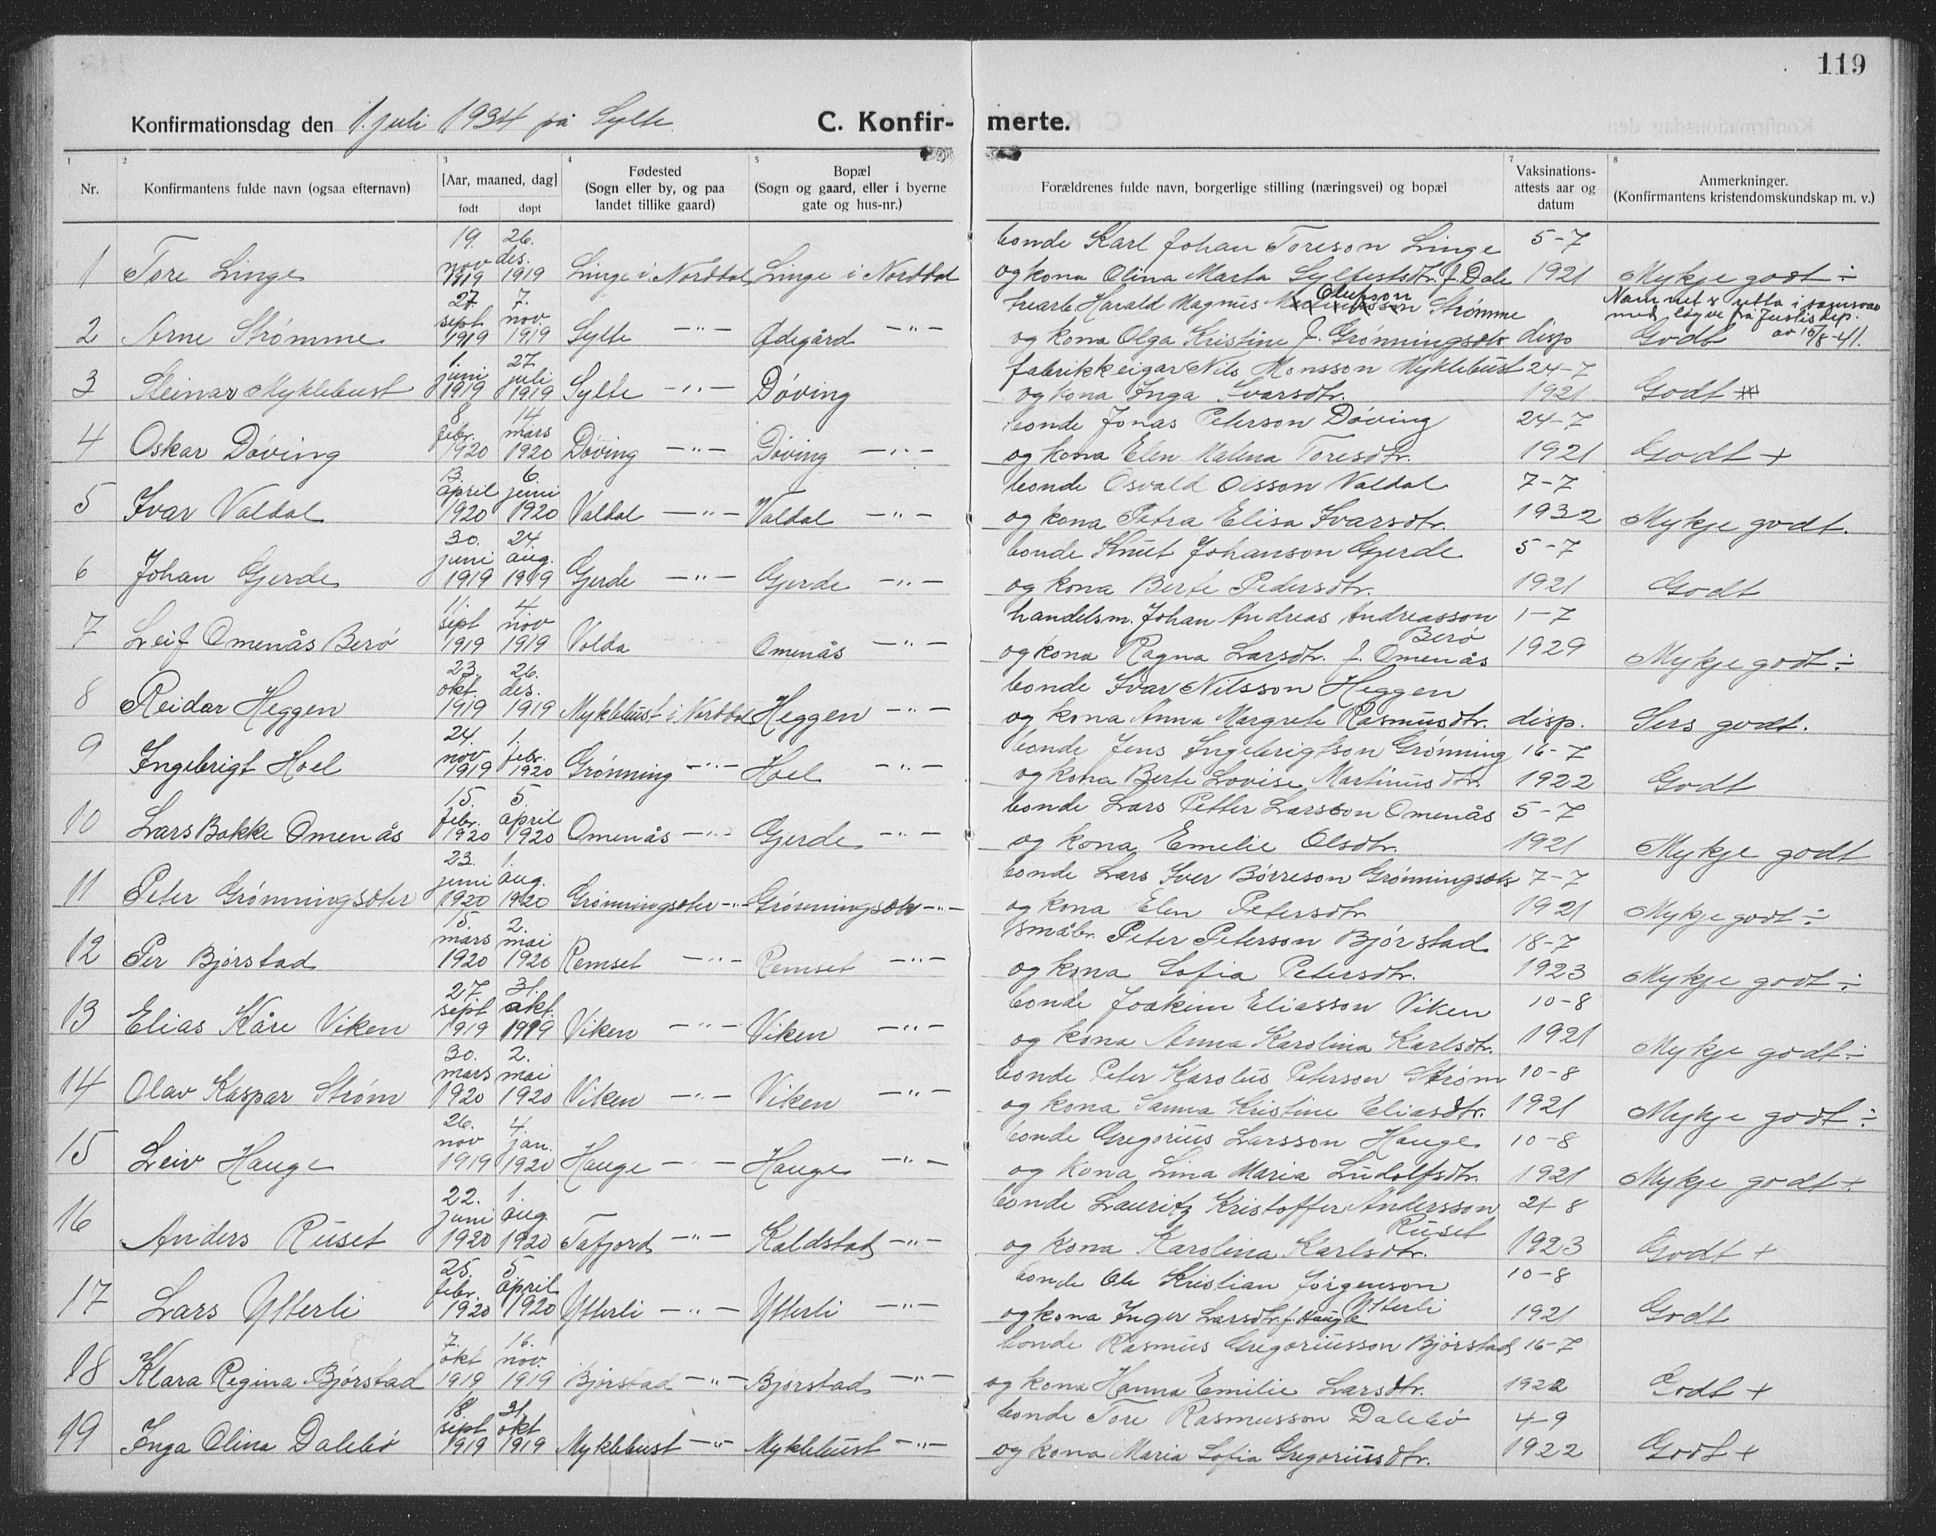 119
Konfirmationsdag den 1. juli 1934 på Sylte. C. Konfir- merte.
1 2 3 4 5 7 8
Nr. Konfirmantens fulde navn (ogsaa efternavn) [Aar, maaned, dag] født døpt Fødested (Sogn eller by, og paa landet tillike gaard) Bopæl (Sogn og gaard, eller i byerne gate og hus-nr.) Forældrenes fulde navn, borgerlige stilling (næringsvei) og bopæl Vaksinations-attests aar og datum Anmerkninger. (Konfirmantens kristendomskundskap m. v.)
1 Tore Linge 19. nov 1919 26. des. 1919 Linge i Norddal Linge i Norddal bonde Karl Johan Toreson Linge 5-7
og kona Olina Marta Sylfestsdtr. f. Dale 1921 Mykje godt ÷
2 Arne Strømme 27 sept 1919 7. nov. 1919 Sylte -"- Ødegård -"- trearb. Harald Magnus Olufson Strømme
Namnet er retta i samsvar med løyve frå Justisdep. av 15/8-41.
og kona Olga Kristine f. Grønningsætr. disp Godt
3 Steinar Myklebust 1. juni 1919 27. juli 1919 Sylte -"- Døving fabrikkeigar Nils Monsson Myklebust 24-7
og kona Inga Ivarsdtr. 1921 Godt
4 Oskar Døving 8 febr. 1920 14 mars 1920 Døving -"- Døving -"- bonde Jonas Peterson Døving 24-7
og kona Elen Malena Toresdtr. 1921 Godt +
5 Ivar Valdal 13. april 1920 6. juni 1920 Valdal -"- Valdal -"- bonde Osvald Olsson Valdal 7-7
og kona Petra Elisa Ivarsdtr. 1932 Mykje godt.
6 Johan Gjerde 30. juni 1919 24. aug. 1919 Gjerde -"- Gjerde -"- bonde Knut Johanson Gjerde 5-7
og kona Berte Pedersdtr. 1921 Godt
7 Leif Omenås Berø 11. sept 1919 4. nov 1919 Volda Omenås -"- handelsm. Johan Andreas Andreasson Berø 1-7
og kona Ragna Larsdtr. f. Omenås 1929 Mykje godt ÷
8 Reidar Heggen 23. okt. 1919 26. des. 1919 Myklebust i Norddal Heggen -"- bonde Ivar Nilsson Heggen
og kona Anna Margrete Rasmusdtr. disp. Sers godt.
9 Ingebrigt Hoel 24. nov 1919 1. febr. 1920 Grønning -"- Hoel -"- bonde Jens Ingebrigtson Grønning 16-7
og kona Berte Lovise Martinusdtr. 1922 Godt
10 Lars Bakke Omenås 15. febr. 1920 5. april 1920 Omenås -"- Gjerde -"- bonde Lars Petter Larsson Omenås 5-7
og kona Emelie Olsdtr. 1921 Mykje godt
11 Peter Grønningsæter 23. juni 1920 1. aug. 1920 Grønningsæter -"- Grønningsætr -"- bonde Lars Iver Børreson Grønningsætr 7-7
og kona Elen Petersdtr 1921 Mykje godt ÷
12 Per Bjørstad 15. mars 1920 2. mai 1920 Remset -"- Remset -"- småbr. Peter Peterson Bjørstad 18-7
og kona Sofia Petersdtr. 1923 Mykje godt ÷
13 Elias Kåre Viken 27 sept 1919 31. okt. 1919 Viken -"- Viken -"- bonde Joakim Eliasson Viken 10-8
og kona Anna Karolina Karlsdtr. 1921 Mykje godt ÷
14 Olav Kaspar Strøm 30. mars 1920 2. mai 1920 Viken -"- Viken -"- bonde Peter Karolus Peterson Strøm 10-8
og kona Sanna Kristine Eliasdtr. 1921 Mykje godt ÷
15 Leiv Hauge 26. nov 1919 4. jan. 1920 Hauge -"- Hauge -"- bonde Gregorius Larsson Hauge 10-8
og kona Lina Maria Ludolfsdtr. 1921 Mykje godt +
16 Anders Ruset 22. juni 1920 1. aug. 1920 Tafjord -"- Kaldstad -"- bonde Lauritz Kristoffer Andersson Ruset 21-8
og kona Karolina Karlsdtr. 1923 Godt +
17 Lars Ytterli 25. febr. 1920 5. april 1920 Ytterli -"- Ytterli -"- bonde Ole Kristian Jørgenson Ytterli 10-8
og kona Inger Larsdtr. f. Hauge 1921 Godt
18 Klara Regina Bjørstad 7. okt 1919 16. nov. 1919 Bjørstad -"- Bjørstad -"- bonde Rasmus Gregoriusson Bjørstad 16-7
og kona Hanna Emilie Larsdtr. 1922 Godt +
19 Inga Olina Dalebø 18. sept 1919 21. okt 1919 Myklebust -"- Myklebust -"- bonde Tore Rasmusson Dalebø 4-9
og kona Maria Sofia Gregoriusdtr. 1922 Godt +